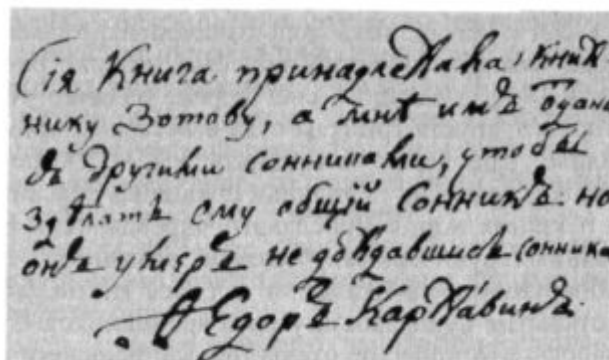 Сія Книга принадлежала Книж
нику Зотову, а мнѣ имъ Ѿдана
съ другими сонниками, чтобъ
здѣлать ему общій Сонникъ но
онъ умеръ не дождавшись сонника
Ѳедоръ Каржавинъ.